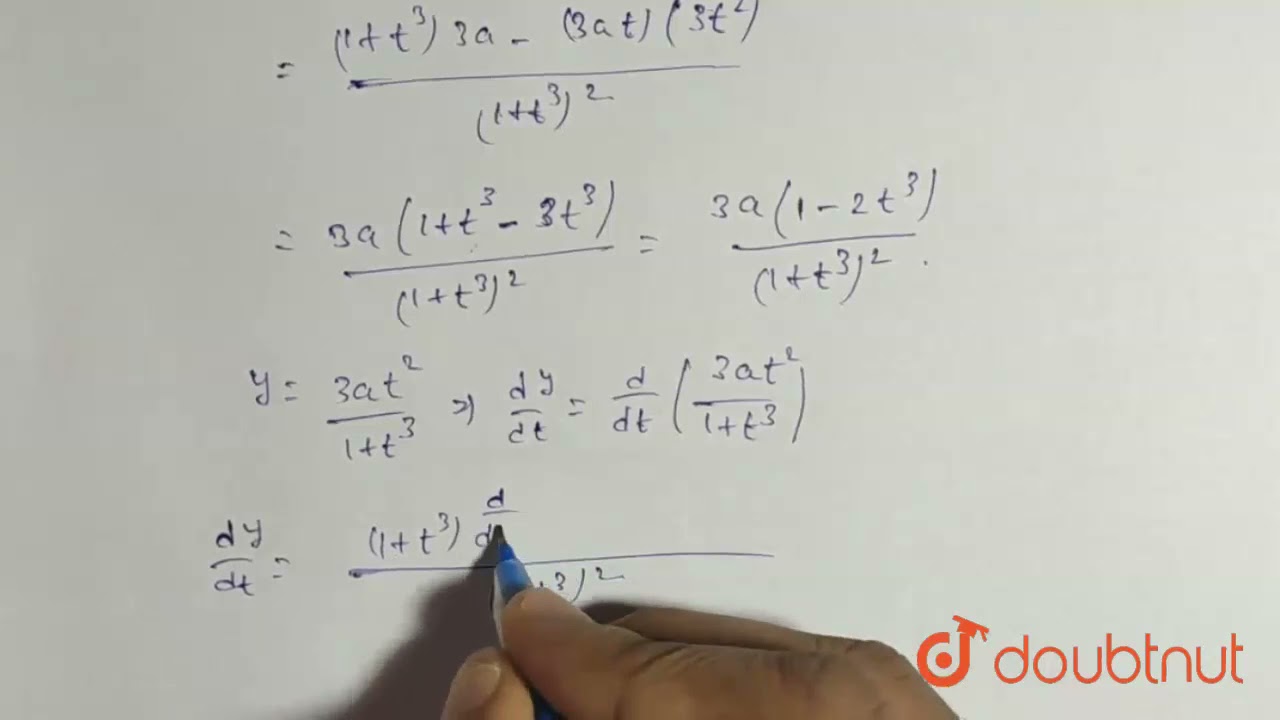 = (1+t³) 3a - (3at) (3t²) / (1+t³)²
= 3a (1+t³ - 3t³) / (1+t³)² = 3a (1-2t³) / (1+t³)² .
y = 3at² / 1+t³ ⇒ dy/dt = d/dt (3at² / 1+t³)
dy/dt = (1+t³) d/d
doubtnut